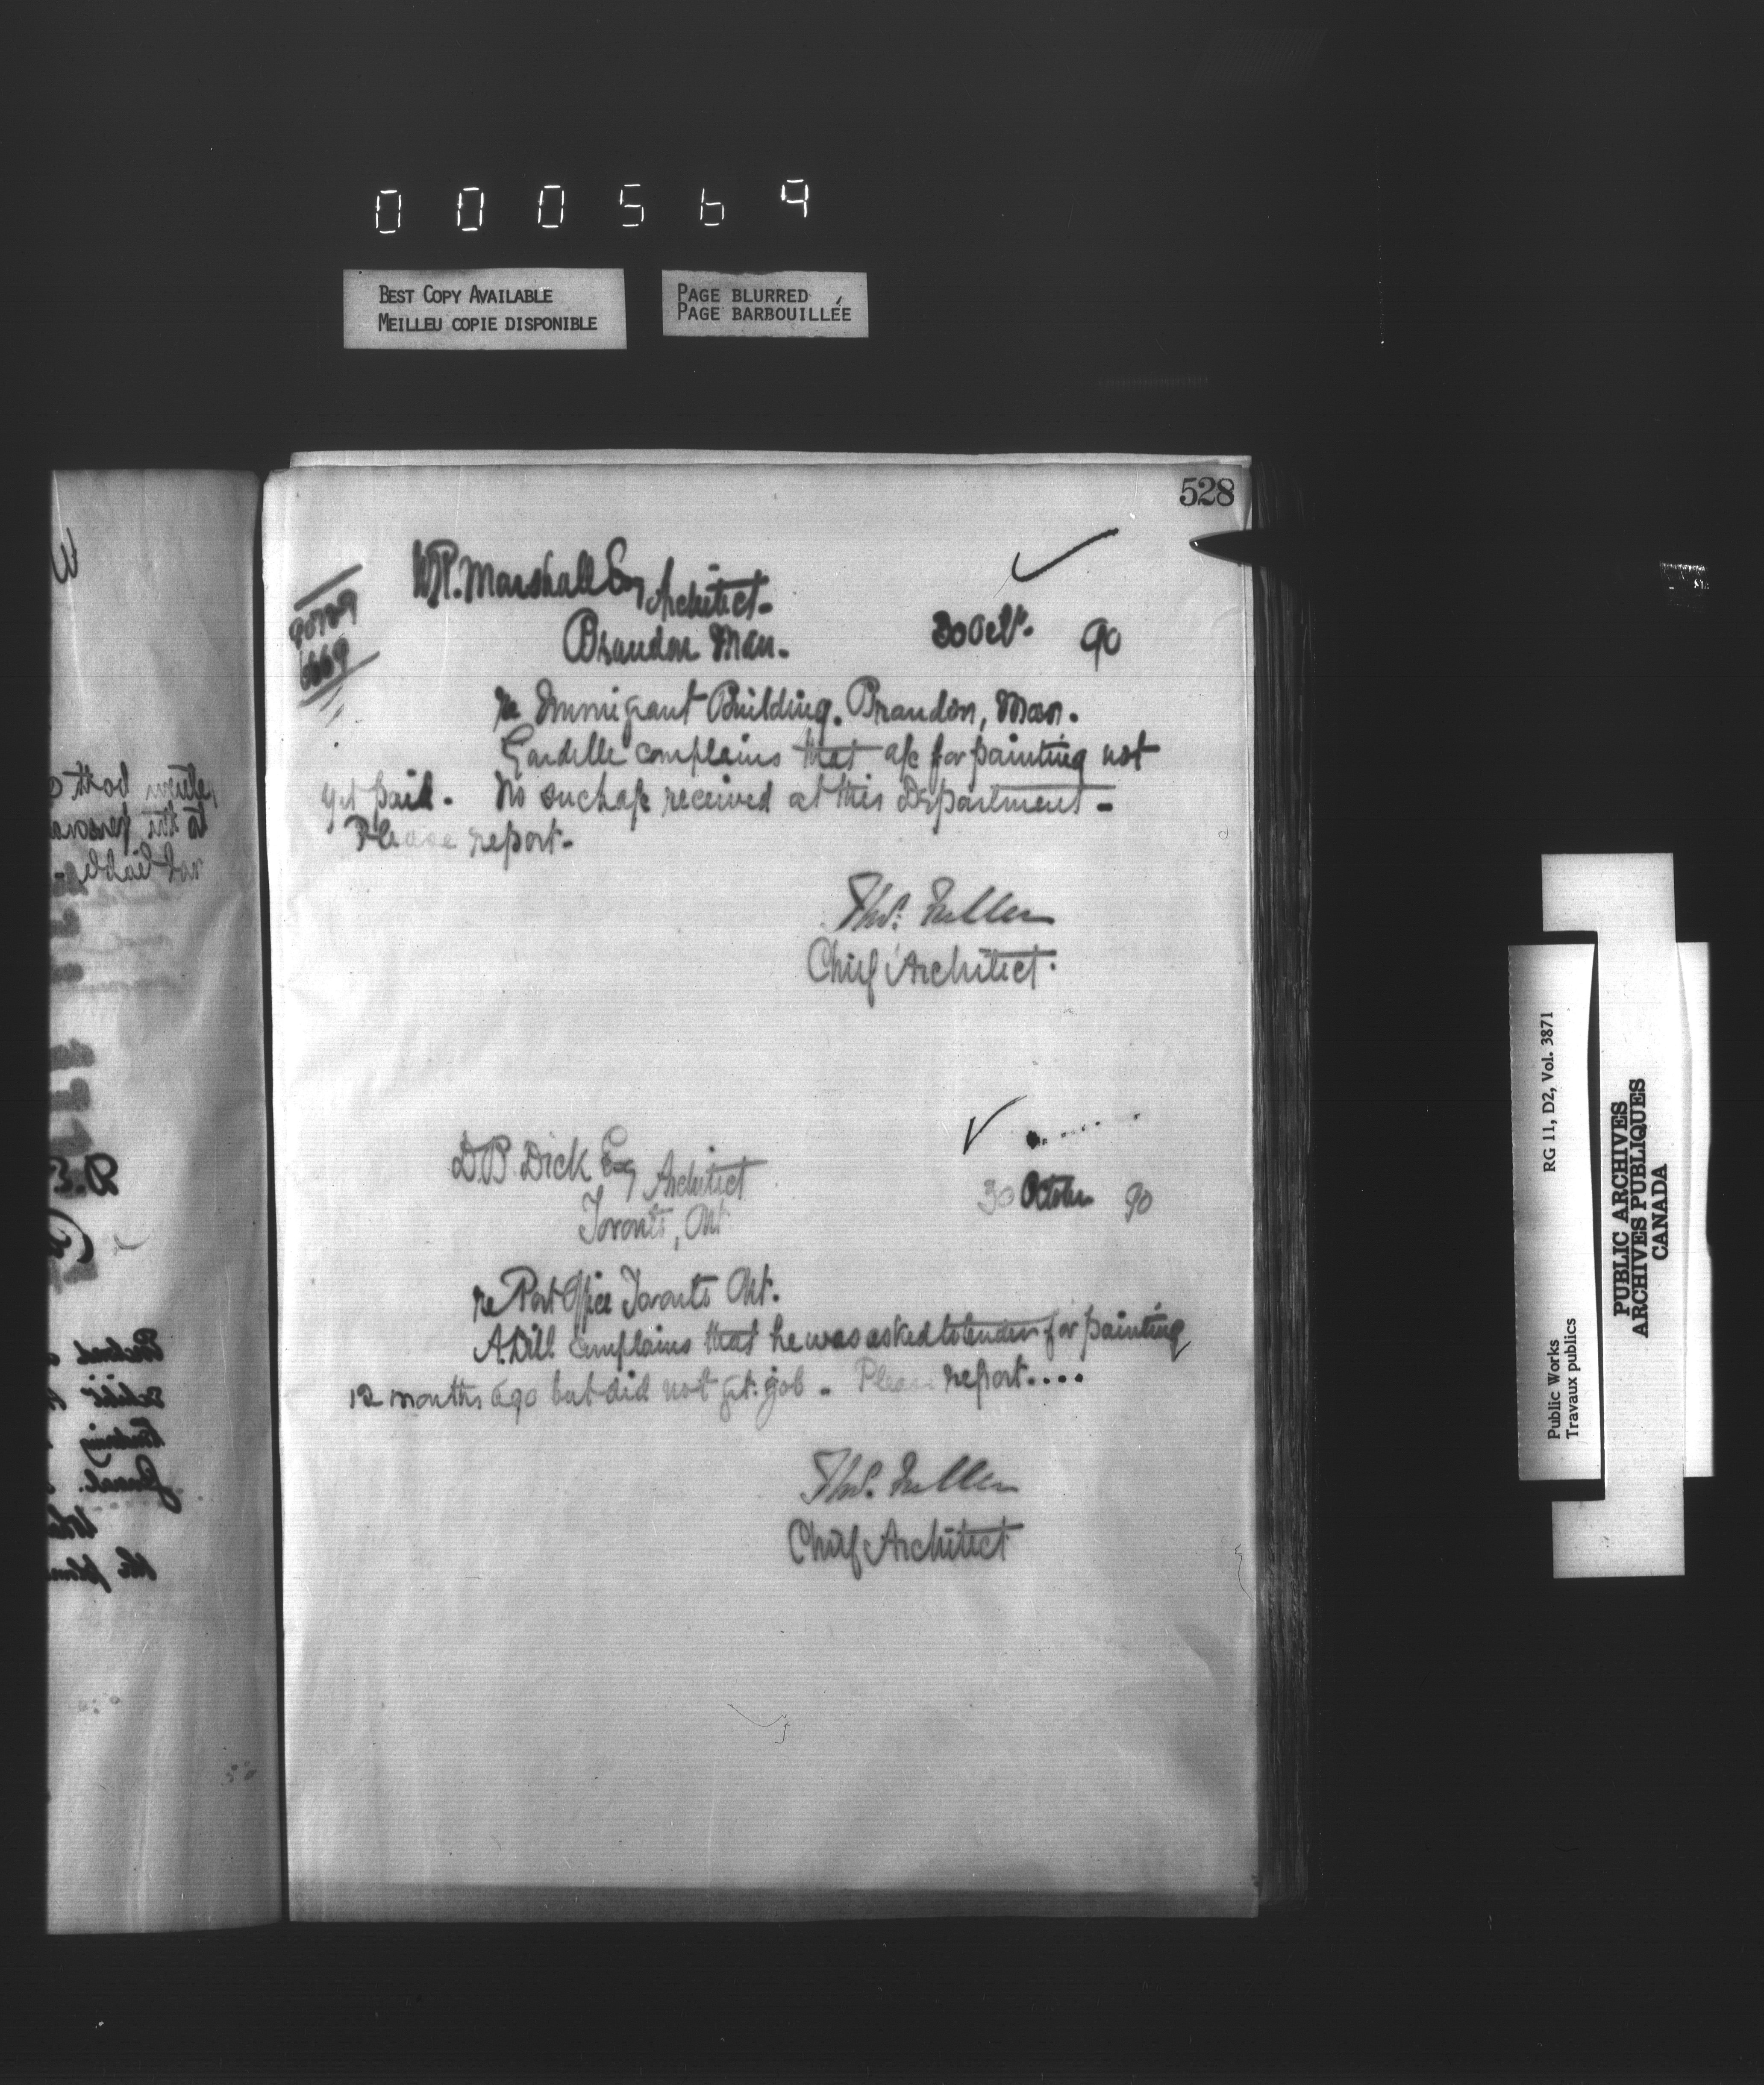 000569
BEST COPY AVAILABLE
MEILLEU COPIE DISPONIBLE
PAGE BLURRED
PAGE BARBOUILLÉE
528
W.R. Marshall Esq Architect.
Brandon Man.
30 Oct. 90
re Immigrant Building. Brandon, Man.
complains that a/c for painting not
yet paid. No such a/c received at this Department.
Please report.
Thos. Fuller
Chief Architect.
D.B. Dick Esq Architect
Toronto, Ont
30 October 90
re Post Office Toronto Ont.
A. Dill complains that he was asked to tender for painting
12 months ago but did not get job. Please report....
Thos. Fuller
Chief Architect
Public Works
Travaux publics
RG 11, D2, Vol. 3871
PUBLIC ARCHIVES
ARCHIVES PUBLIQUES
CANADA